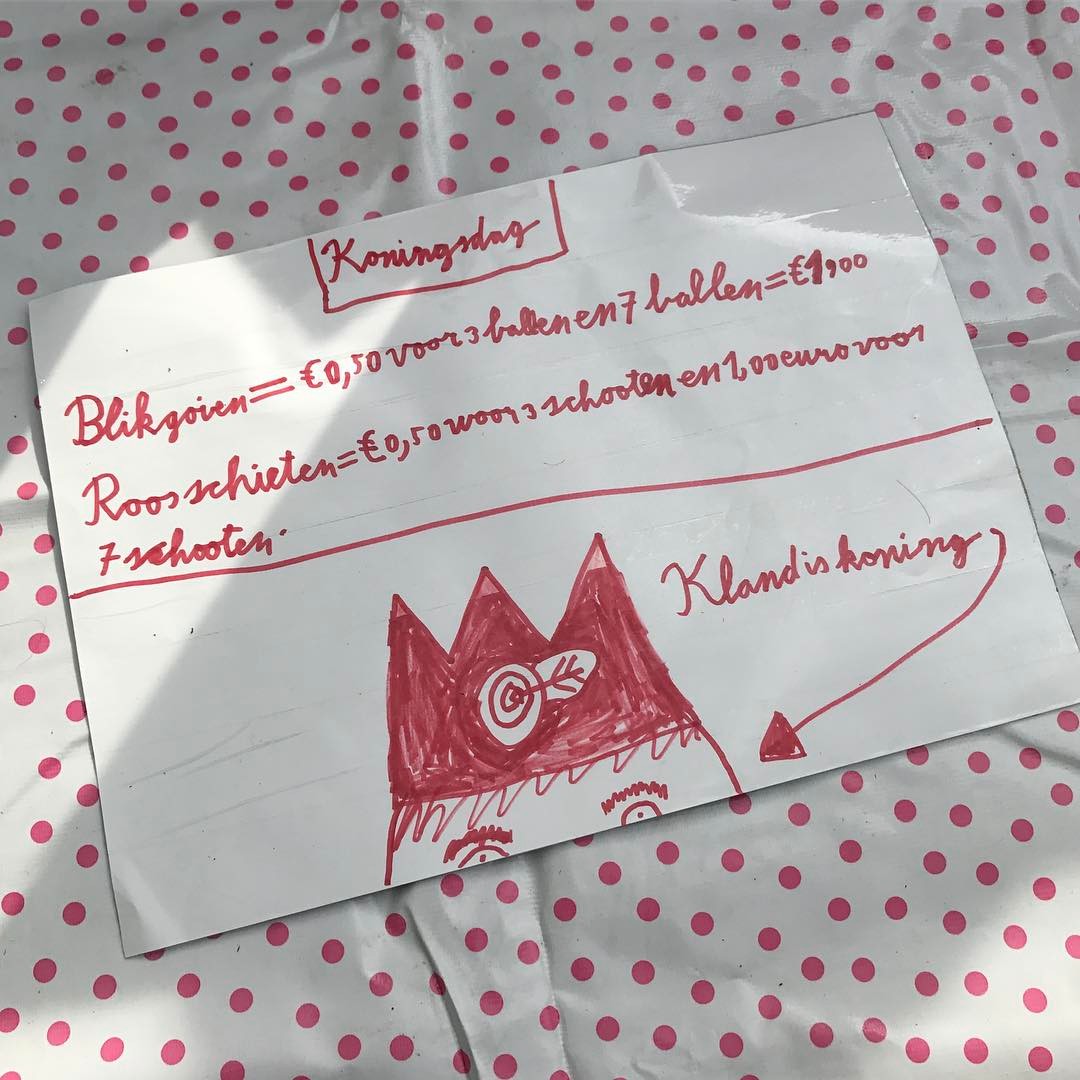 Koningsdag
Blikgoien = €0,50 voor 3 ballen en 7 ballen = €1,00
Roosschieten = €0,50 voor 3 schooten en 1,00 euro voor
7 schooten.
Kland is koning